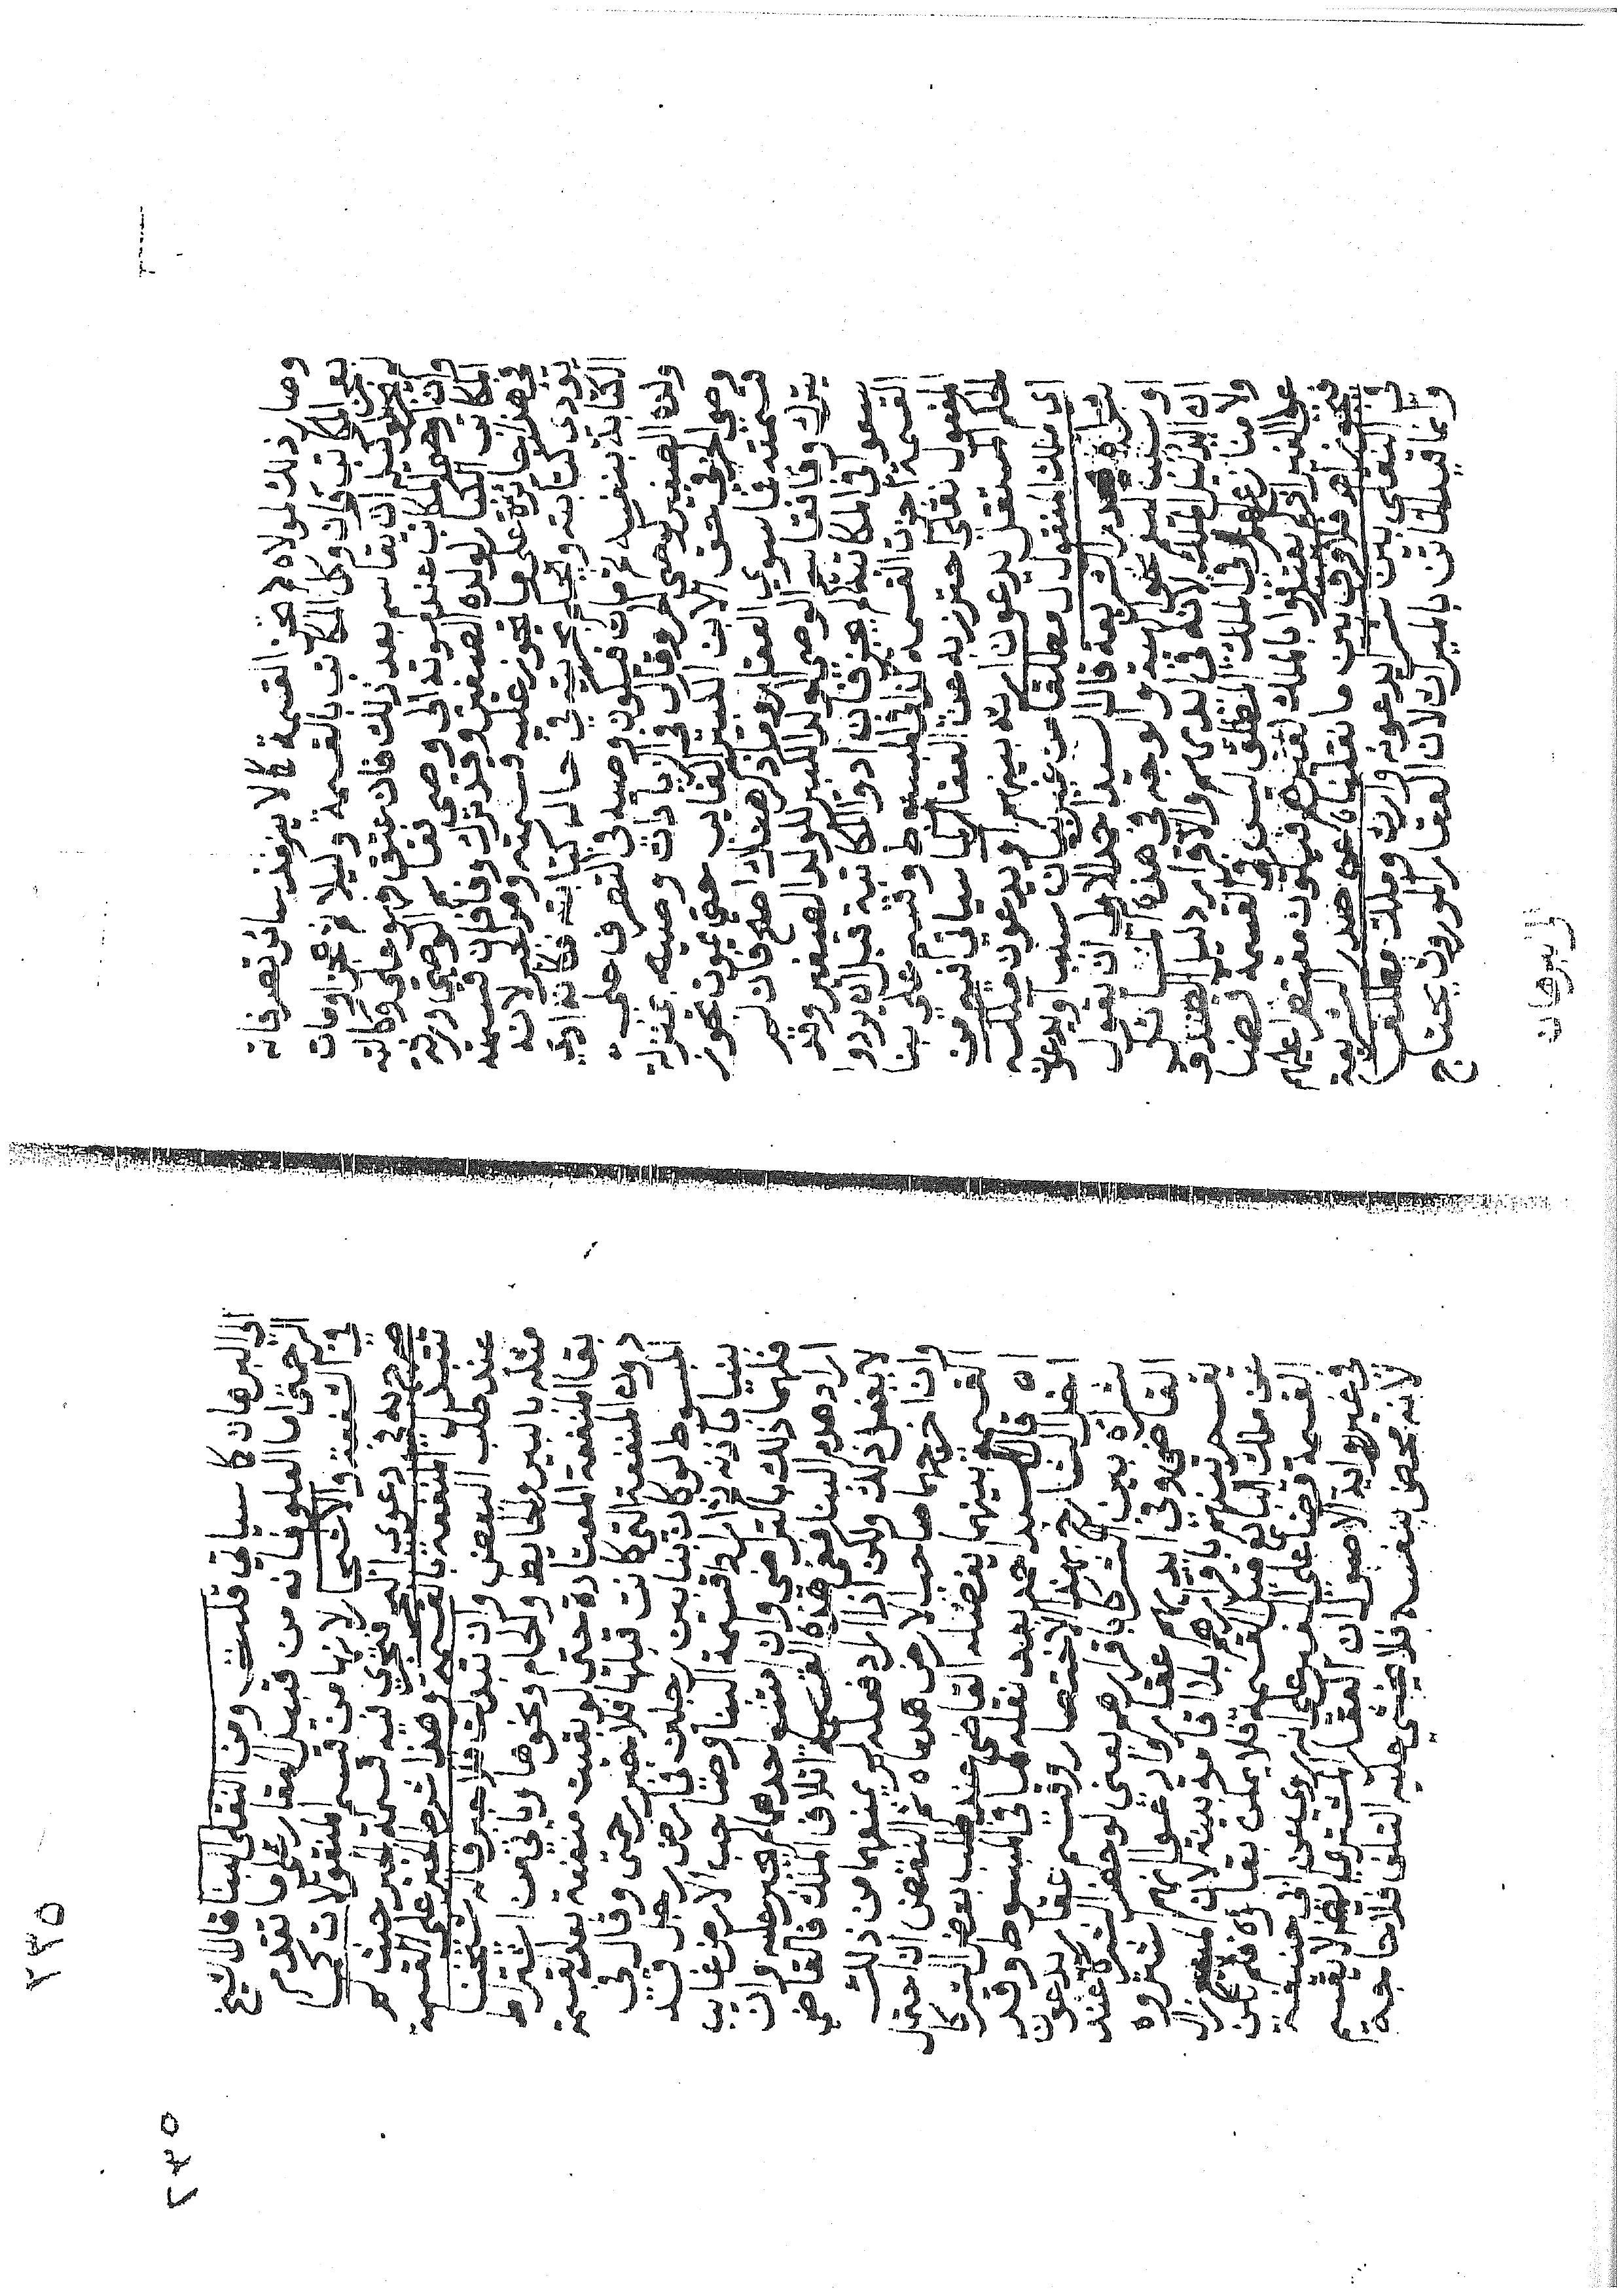 وما ذلك لمولاه لم تجز القسمة كما لا ينفذ سائر تصرفاته
بعد المكاتب وان وكل المكاتب بالقسمة وكيلا ثم عجز او مات
لم يجز لوكيله ان يقاسم بعد ذلك فان عتق فهو على وكالته
وان اوصى المكاتب عند موته الى وصي فقاسم الوصي ورثة
المكاتب الكبار لولده الصغير وقد ترك وفا فان قسمته
في هذا جائزة على ما تجوز عليه قسمة وصي الحر لانه
يؤدي كتابته ويحكم بحريته في حال كتابته فكانه ادي
الكتابة بنفسه ثم مات فيكون وصيه في التصرف على
ولده الصغير كوصي الحر وقال في الزيادات وصيه بمنزلة
وصي الحر في حق الابن الكبير الغايب حتى تجوز
قسمته فيما سوي العقار وما ذكر هنا اصح فان لم
يترك وفا فقاسم الوصي الولد الكبير للولد الصغير وقد
سعوا في المكاتبة لم يجز فان ادوا المكاتبة قبل ان يردوا
القسمة اجزت القسمة كذا في المبسوط وقسم
نقلى احترز به عن العقار كما سياتي فيه من
الحكم المستقل يدعون ارثه بينهم او يدعون ملكه
اي ملك منقول مطلقا من غير بيان سبب او يدعون
شراه صدر الشريعة قال السيد احمد الاولى ان يقول
او سببه ليعم نحو الهبة والوجه في هذه المسائل
ان اليد دليل الملك لانه في ايديهم والاقرار دليل الصدق
ولا منازع لهم في الملك المطلق ليس في القسمة قضا
على الغير بالملك لغيرهم فيكون مقتصرا عليهم
فيجوز فارق بين ما نقلناه عن صدر الشريعة
في النقلي بين شرا يدعونه وارث وملك مطلق
وانما قيد المتن بالميراث لان العقار الموروث يحتاج
الى البرهان
٢٣٥
٢٣٥
الى البرهان كما سياتي قلت ومن النقلى البنا قال الشيخ
الرحمتي اما العلو فانه من قبيل العقار على ما تقدم
في الشفعة والاشجار لانها من قسم المنقولات كما
صرح به في دعوي البحر فتجري فيه قسمة الجبر حيث لم
تتبدل المنفعة بالقسمة وهذا شرط الجبر على القسمة
عند طلب البعض وان تبدلت فلا جبر قاله شيخنا
مثله بالبير والحايط والحمام ونحوها وياتي من اشتراط
بقا المنفعة المعتادة حتى لو بقيت منفعة بعد القسمة
دون المنفعة التي كانت قبلها فلا جبر رحمتي وقال في
المبسوط لو كان بنا بين رجلين في ارض رجل قد
بنياه باذنه ثم ارادا قسمة البنا وصاحب الارض غايب
فلهما ذلك بالتراضي وان امتنع احدهما لم يجبر عليه وان
ارادا هدم البنا ففي هذه القسمة اتلاف الملك فالقاضي
لا يفعل ذلك ولكن اذا ارادا فعله لم يمنعهما من ذلك
وان اخرجهما صاحب الارض هدماه ثم النقض ان احتمل
القسمة بينهما يفعله القاضي عند طلب بعض الشركا
اه قال السيد احمد بعد نقله لما في المبسوط وقد
اخل الشارح بهذا الاختصار وقسم عقار يدعون
شراه بين الشركا باقرارهم يعني لو حضر الشركا عند
القاضي وفي ايديهم عقار وادعوا انهم اشتروه
يقسم بينهم باقرارهم بلا اقامة بينة لان المبيع زال
عن ملك البايع قبل القسمة فلا يملى بقاؤه فلم يكن
القسمة قضا على الغير على انه روي عن ابي حنيفة
في غير رواية الاصول ان العقار المشتري ايضا لا يقسم
لانه محصن بنفسه فلا يخشى عليه التلف فلا حاجة